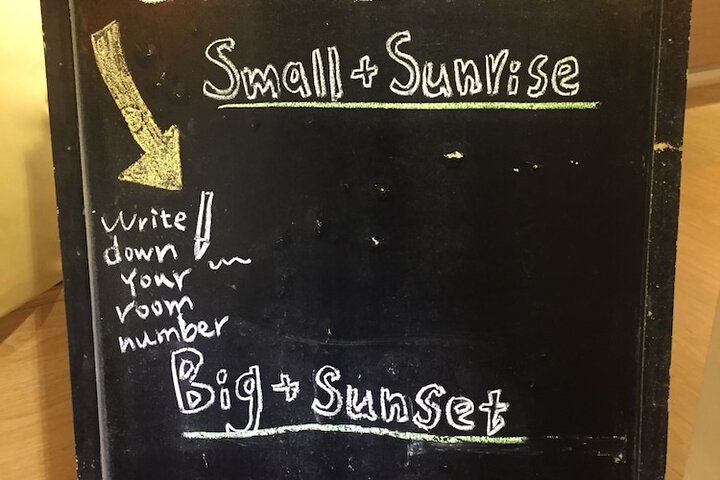 Small + Sunrise
Write
down
your
room
number
Big + Sunset